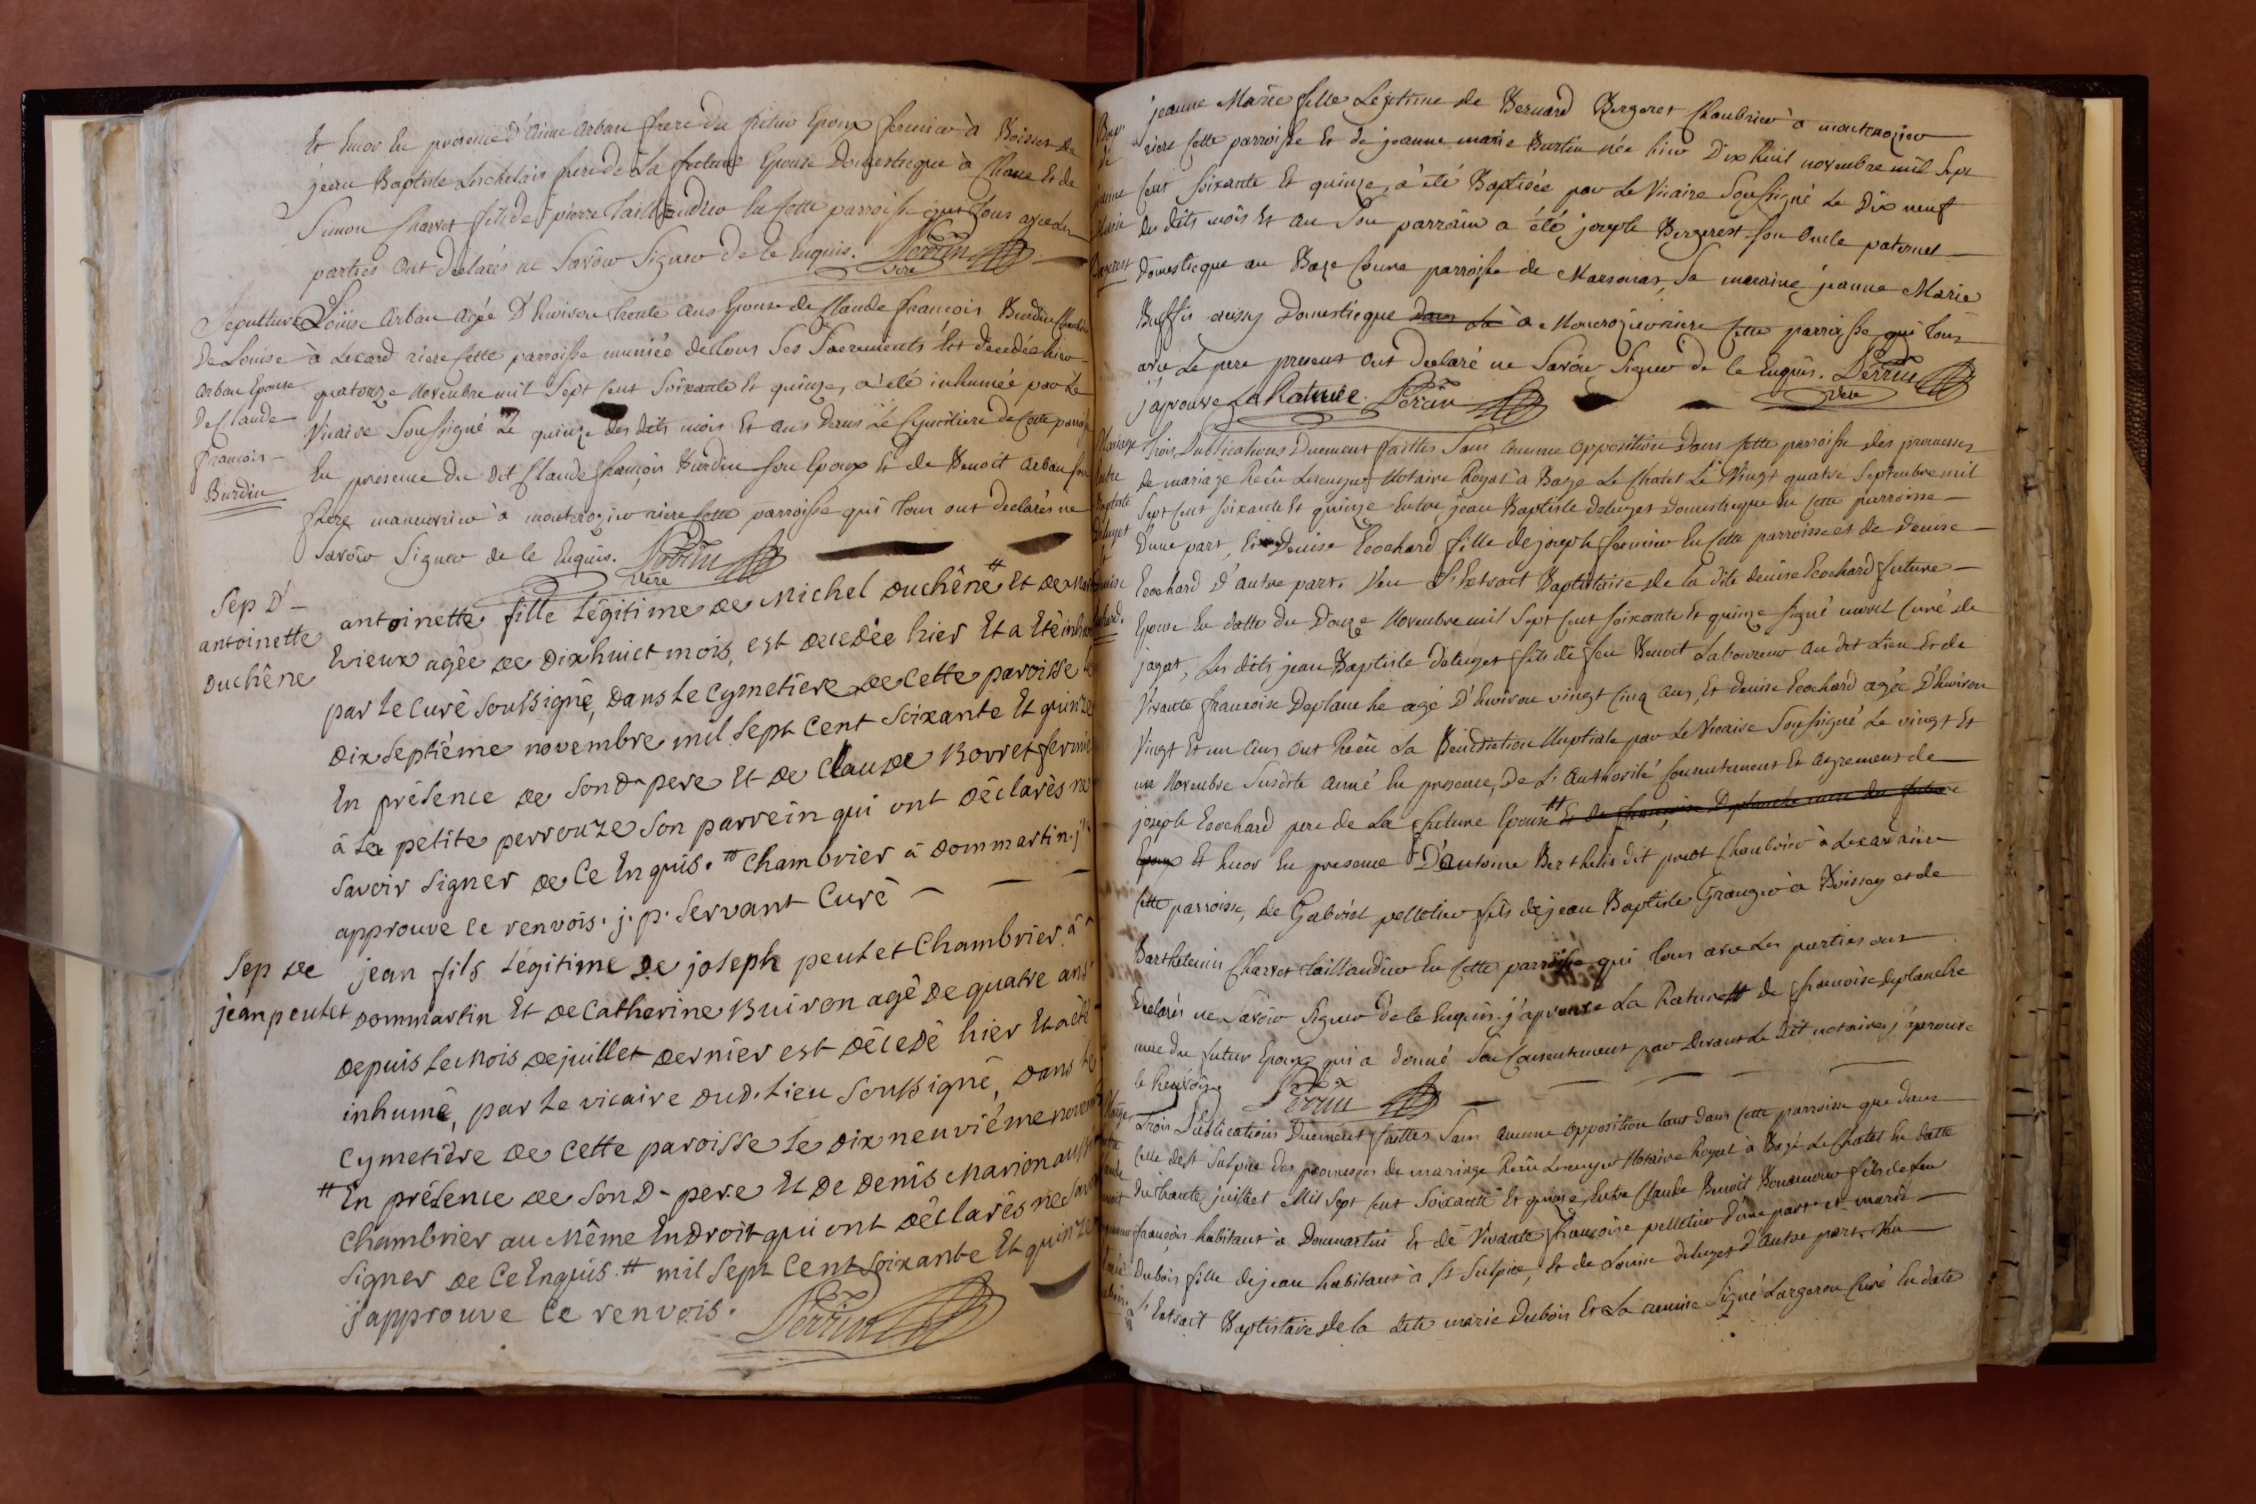 Et Encor En presence D'aimé arban frere du futur Epoux fermier à Boisset de
jean Baptiste Lechelais frere de la future Epouse Domesticque à Chaue Et de
Simon Charvet fils de pierre taillandier En cette parroisse qui tous avec Les
parties Ont declarés ne Savoir Signer de ce Enquis. Perrin
vire
Sepulture
De Louise
arban Epouse
De Claude
françois
Burdin
Loüise arban agée D'Environ trente ans Epouse de Claude françois Burdin
à Lecard riere cette parroisse muniée de tous Ses Sacrements Est decedée hier
quatorze Novembre mil Sept cent Soixante Et quinze, a été inhumée par Le
Vicaire Soussigné Le quinze des dits mois Et ans dans Le Cymetiere de cette parroisse
En presence du dit Claude françois Burdin son Epoux Et de Benoit arban son
frere manuvrier à montcrozier riere cette parroisse qui tous ont declarés ne
Savoir Signer de ce Enquis. Perrin
vire
Sep D'
antoinette
Duchêne
antoinette fille Légitime de Michel Duchêne # Et de
Evieux agée de Dixhuict mois, est decedée hier Et a Eté
par le Curé soussigné, dans le cymetière de cette paroisse
Dixseptième novembre mil Sept Cent Soixante Et quinze
En présence de Sond. pere Et de Claude Borret fermier
â La petite perrouze Son parrein qui ont Déclarés ne
Savoir Signer de Ce Enquis. # Chambrier â Dommartin. j'
approuve le renvois. j. p. Servant Curé
Sep de
jean peutet
jean fils Légitime de joseph peutet Chambrier â
Dommartin Et de Catherine Buiron agé de quatre ans
Depuis le Mois de juillet Dernier est Décedé hier Et a été
inhumé, par Le vicaire dud. Lieu Soussigné, dans le
Cymetière de cette paroisse le Dix neuvième
# En présence de Son D. pere Et De Denis Marion aussi
Chambrier au Même Endroit qui ont Déclarés ne Savoir
Signer de Ce Enquis. # mil Sept Cent Soixante Et quinze
j'approuve le renvois. Perrin
jeanne Marie fille Légitime de Bernard Bergeret Chambrier à montcrozier
riere cette parroisse Et de jeanne marie Burtin née hier Dix huit novembre mil Sept
Cent Soixante Et quinze, a été Baptisée par Le Vicaire Soussigné Le Dix neuf
des dits mois Et an Son parrain a été joseph Bergeret Son Oncle paternel
Domesticque au Baze Coure parroisse de Marsonas, Sa marraine jeanne Marie
Buffis aussy Domesticque à Moncrozier riere Cette parroisse qui tous
avec Le pere present ont declaré ne Savoir Signer de ce Enquis. Perrin
j'aprouve La Rature. Perrin
vire
Mariage
Entre
Baptiste
Deluget
Trois Publications Duement faittes Sans aucune opposition dans Cette parroisse des promesses
de mariage Recüe Notaire Royal à Bage Le Chatel Le Vingt quatre Septembre mil
Sept Cent Soixante Et quinze Entre jean Baptiste Deluget Domesticque En Cette parroisse
Dune part, Et Denise Ecochard fille de joseph fermier En Cette parroisse et de Denise
Ecochard D'autre part. Veu L'Extrait Baptistaire de la dite denise Ecochard future
Epouse En datte du Douze Novembre mil Sept Cent Soixante Et quinze Signé morel Curé de
jayat, Les dits, jean Baptiste Deluget fils de feu Benoit Laboureur au dit Lieu Et de
Vivante francoise Deplanche agé D'Environ vingt Cinq ans, Et denise Ecochard agée D'Environ
Vingt Et un ans ont Recüe La Bénédiction Nuptiale par Le Vicaire Soussigné Le vingt Et
un Novembre Susdite année En presence, De L'authorité Consentement Et agrement de
joseph Ecochard pere de La future Epouse # Et de françoise Deplanche mere du futur
Epoux Et Encor En presence D'antoine Berthelin dit pruot Chambrier à Lecar riere
Cette parroisse, de Gabriel pelletier fils de jean Baptiste Granger à Boissey et de
Barthelemis Charvet taillandier En Cette parroisse qui tous avec Les parties ont
Declarés ne Savoir Signer de ce Enquis. j'aprouve La Rature # de francoise deplanche
mere du futur Epoux qui a donné Son Consentement par devant Le dit notaire, j'aprouve
le Renvois. Perrin
Trois Publications Duement faittes Sans aucune Opposition tant dans Cette parroisse que dans
Celle de St Sulpice des promesses de mariage Recüe Notaire Royal à Bagé Le Chatel En datte
du trente juillet Mil Sept Cent Soixante Et quinze, Entre Claude Benoit Bonamour fils de feu
françois habitant à Dommartin Et de Vivante françoise pelletier d'une part et marie
Dubois fille de jean habitant à St Sulpice, Et de Louise deluget D'autre part. Veu
L'Extrait Baptistaire de la dite marie Dubois Et La remise Signé Largeron Curé En date